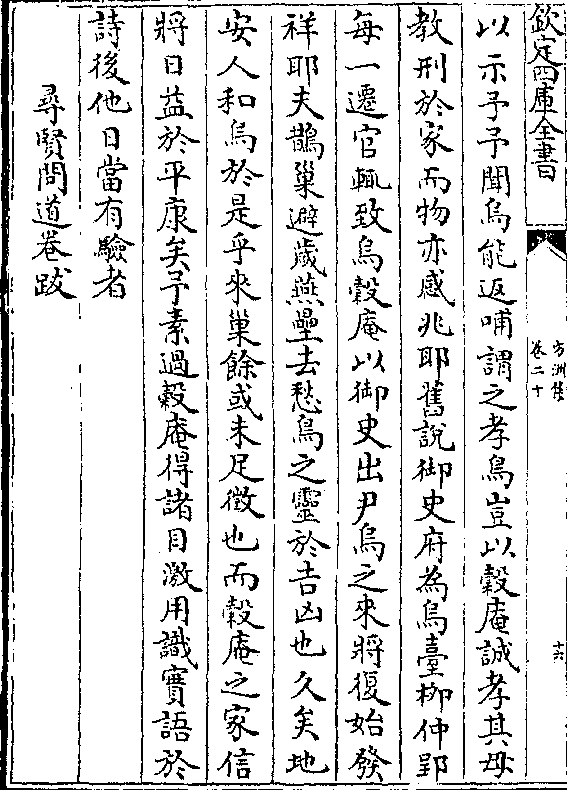 欽定四庫全書
方洲集
卷二十
十六
以示予予聞烏能返哺謂之孝鳥豈以穀庵誠孝其母
教刑於家而物亦感兆耶舊說御史府為烏臺柳仲郢
每一遷官輒致烏穀庵以御史出尹烏之來將復始發
祥耶夫鵲巢避歲燕壘去愁烏之靈於吉凶也久矣地
安人和烏於是乎來巢餘或未足徵也而穀庵之家信
將日益於平康矣予素過穀庵得諸目激用識實語於
詩後他日當有驗者
尋賢問道卷跋